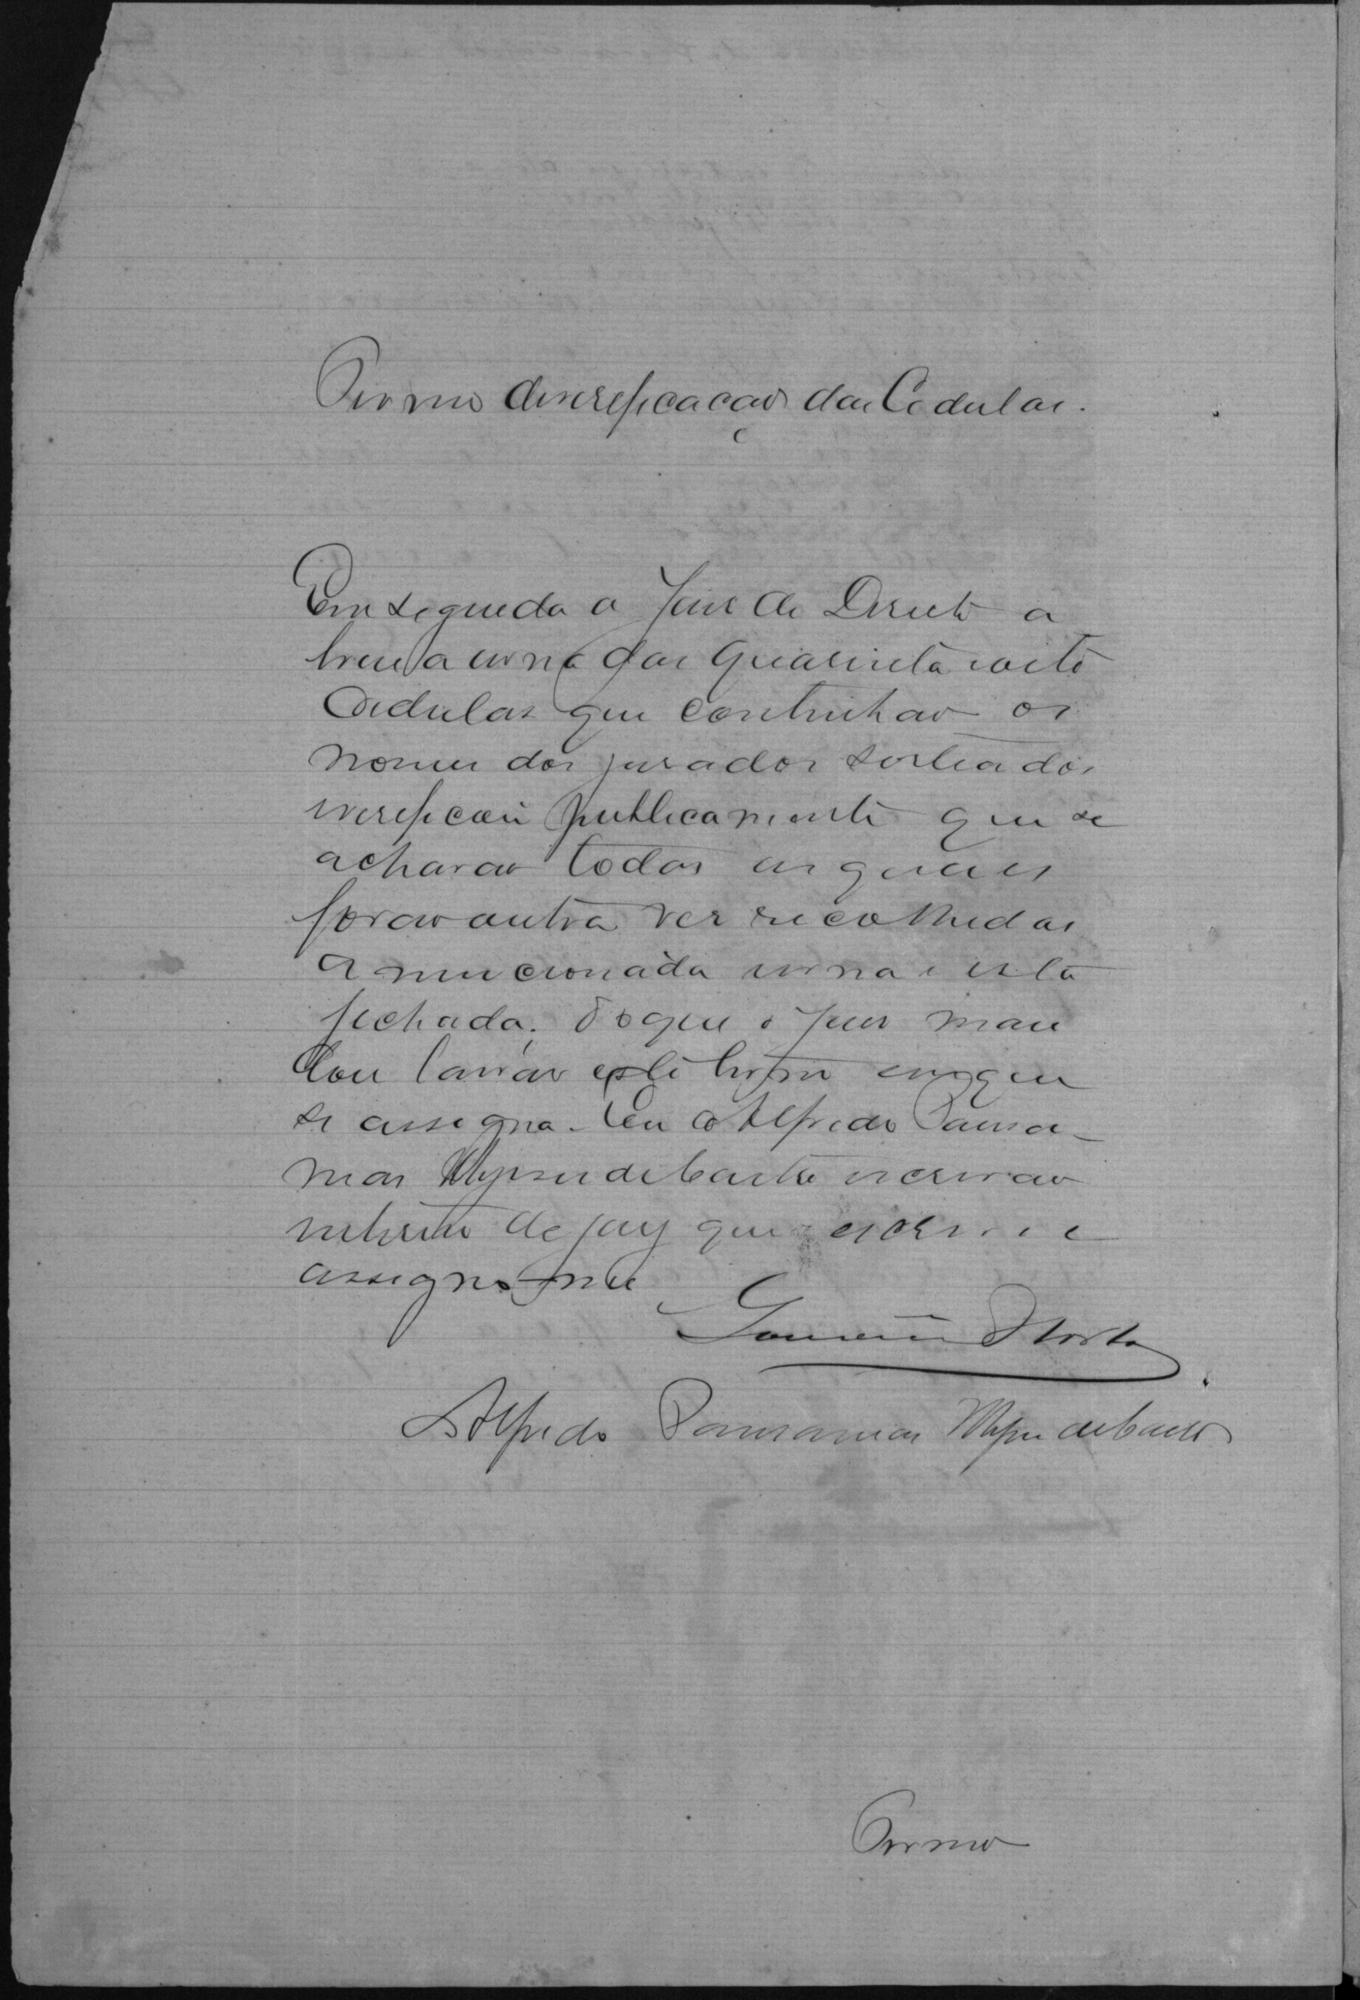 Termo deverificação das Cedulas.
Em seguida o Juiz de Direito a
briu a urna das quarenta e oito
Cedulas que continhão os
nomes dos jurados sorteados
e verificou publicamente que se
acharão todas as quaes
forão outra vez recolhidas
a mencionada urna e esta
fechada. Do que o Juiz man
dou lavrar este termo em que
se assigna. Eu Alfredo Pausa-
nias de Castro escrivão
interino de jury que escrevi e
assigno-me
Horta
Alfredo Pausanias de Castro
Termo